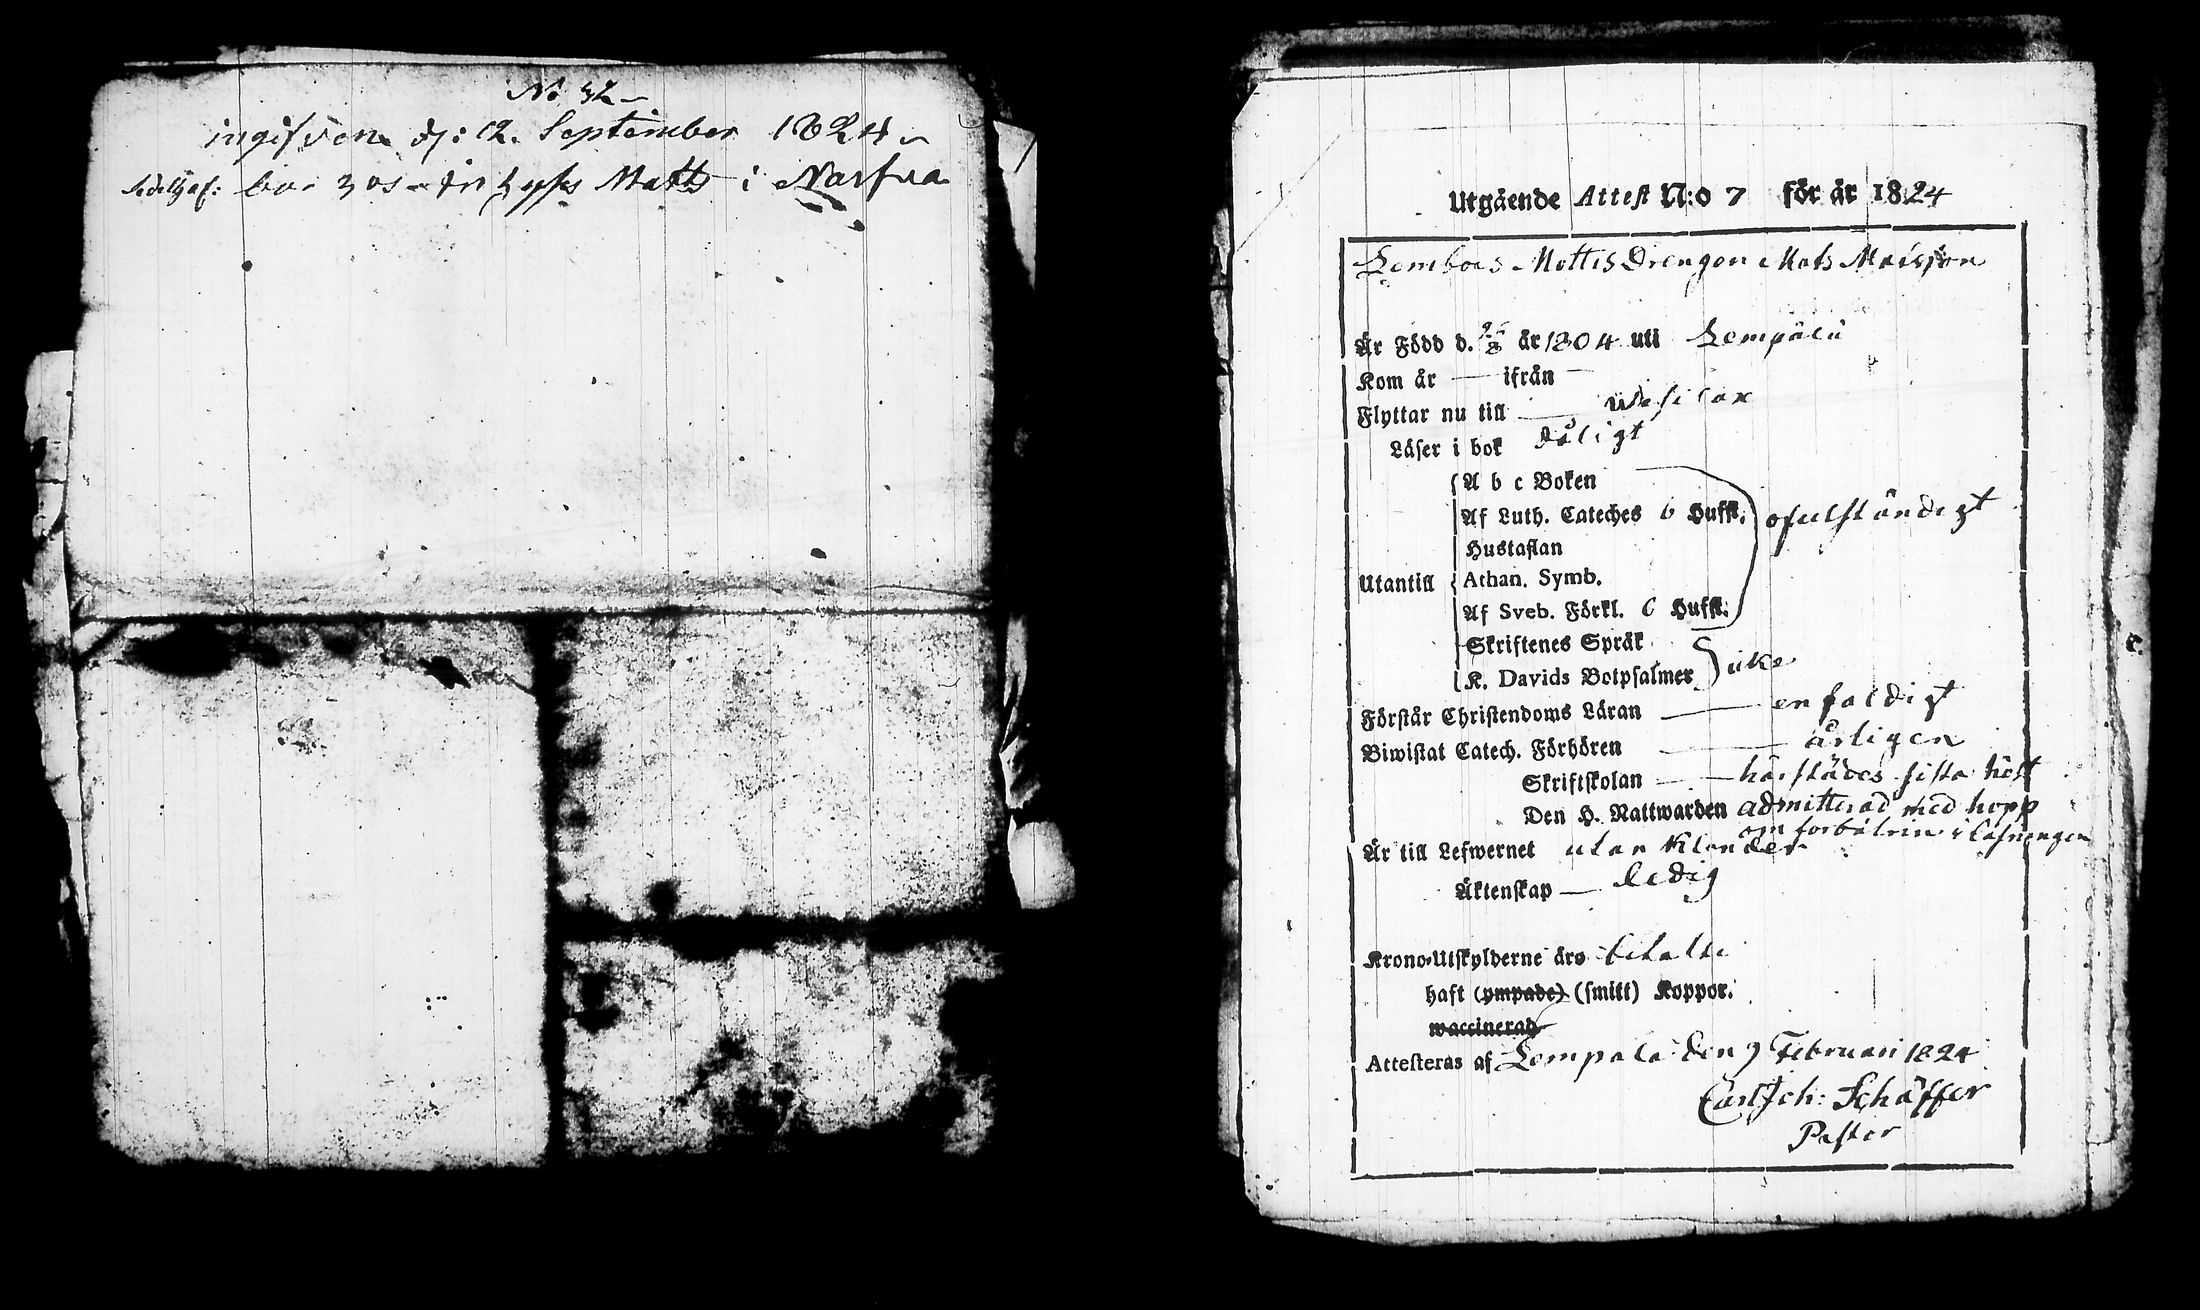 No 32
ingifven d: 12. September 1824
bor i Narfva
Utgående Attest N:o 7 för år 1824
Lembois Mattis Drengen Mats Matsson
Är Född d. 25/8 år 1804 uti Lempälä
Kom år — ifrån —
Flyttar nu till —
Läser i bok dåligt
A b c Boken
Af Luth. Cateches 6 Hufst. ofulständigt
Hustaflan
Utantill Athan. Symb.
Af Sveb. Förkl. 6 Hufst.
Skriftenes Språk
K. Davids Botpsalmer icke
Förstår Christendoms Läran — enfaldigt
Biwistat Catech. Förhören — årligen
Skriftskolan — härstädes sista höst
Den H. Nattwarden admitterad med hopp
om förbätrin i läsningen
Är till Lefwernet utan klander
Äktenskap — ledig
Krono-Utskylderne äro betalte
haft (ympade) (smitt) Koppor.
waccinerad
Attesteras af Lempala den 9 Februari 1824
Carl Joh: Schäffer
Pastor